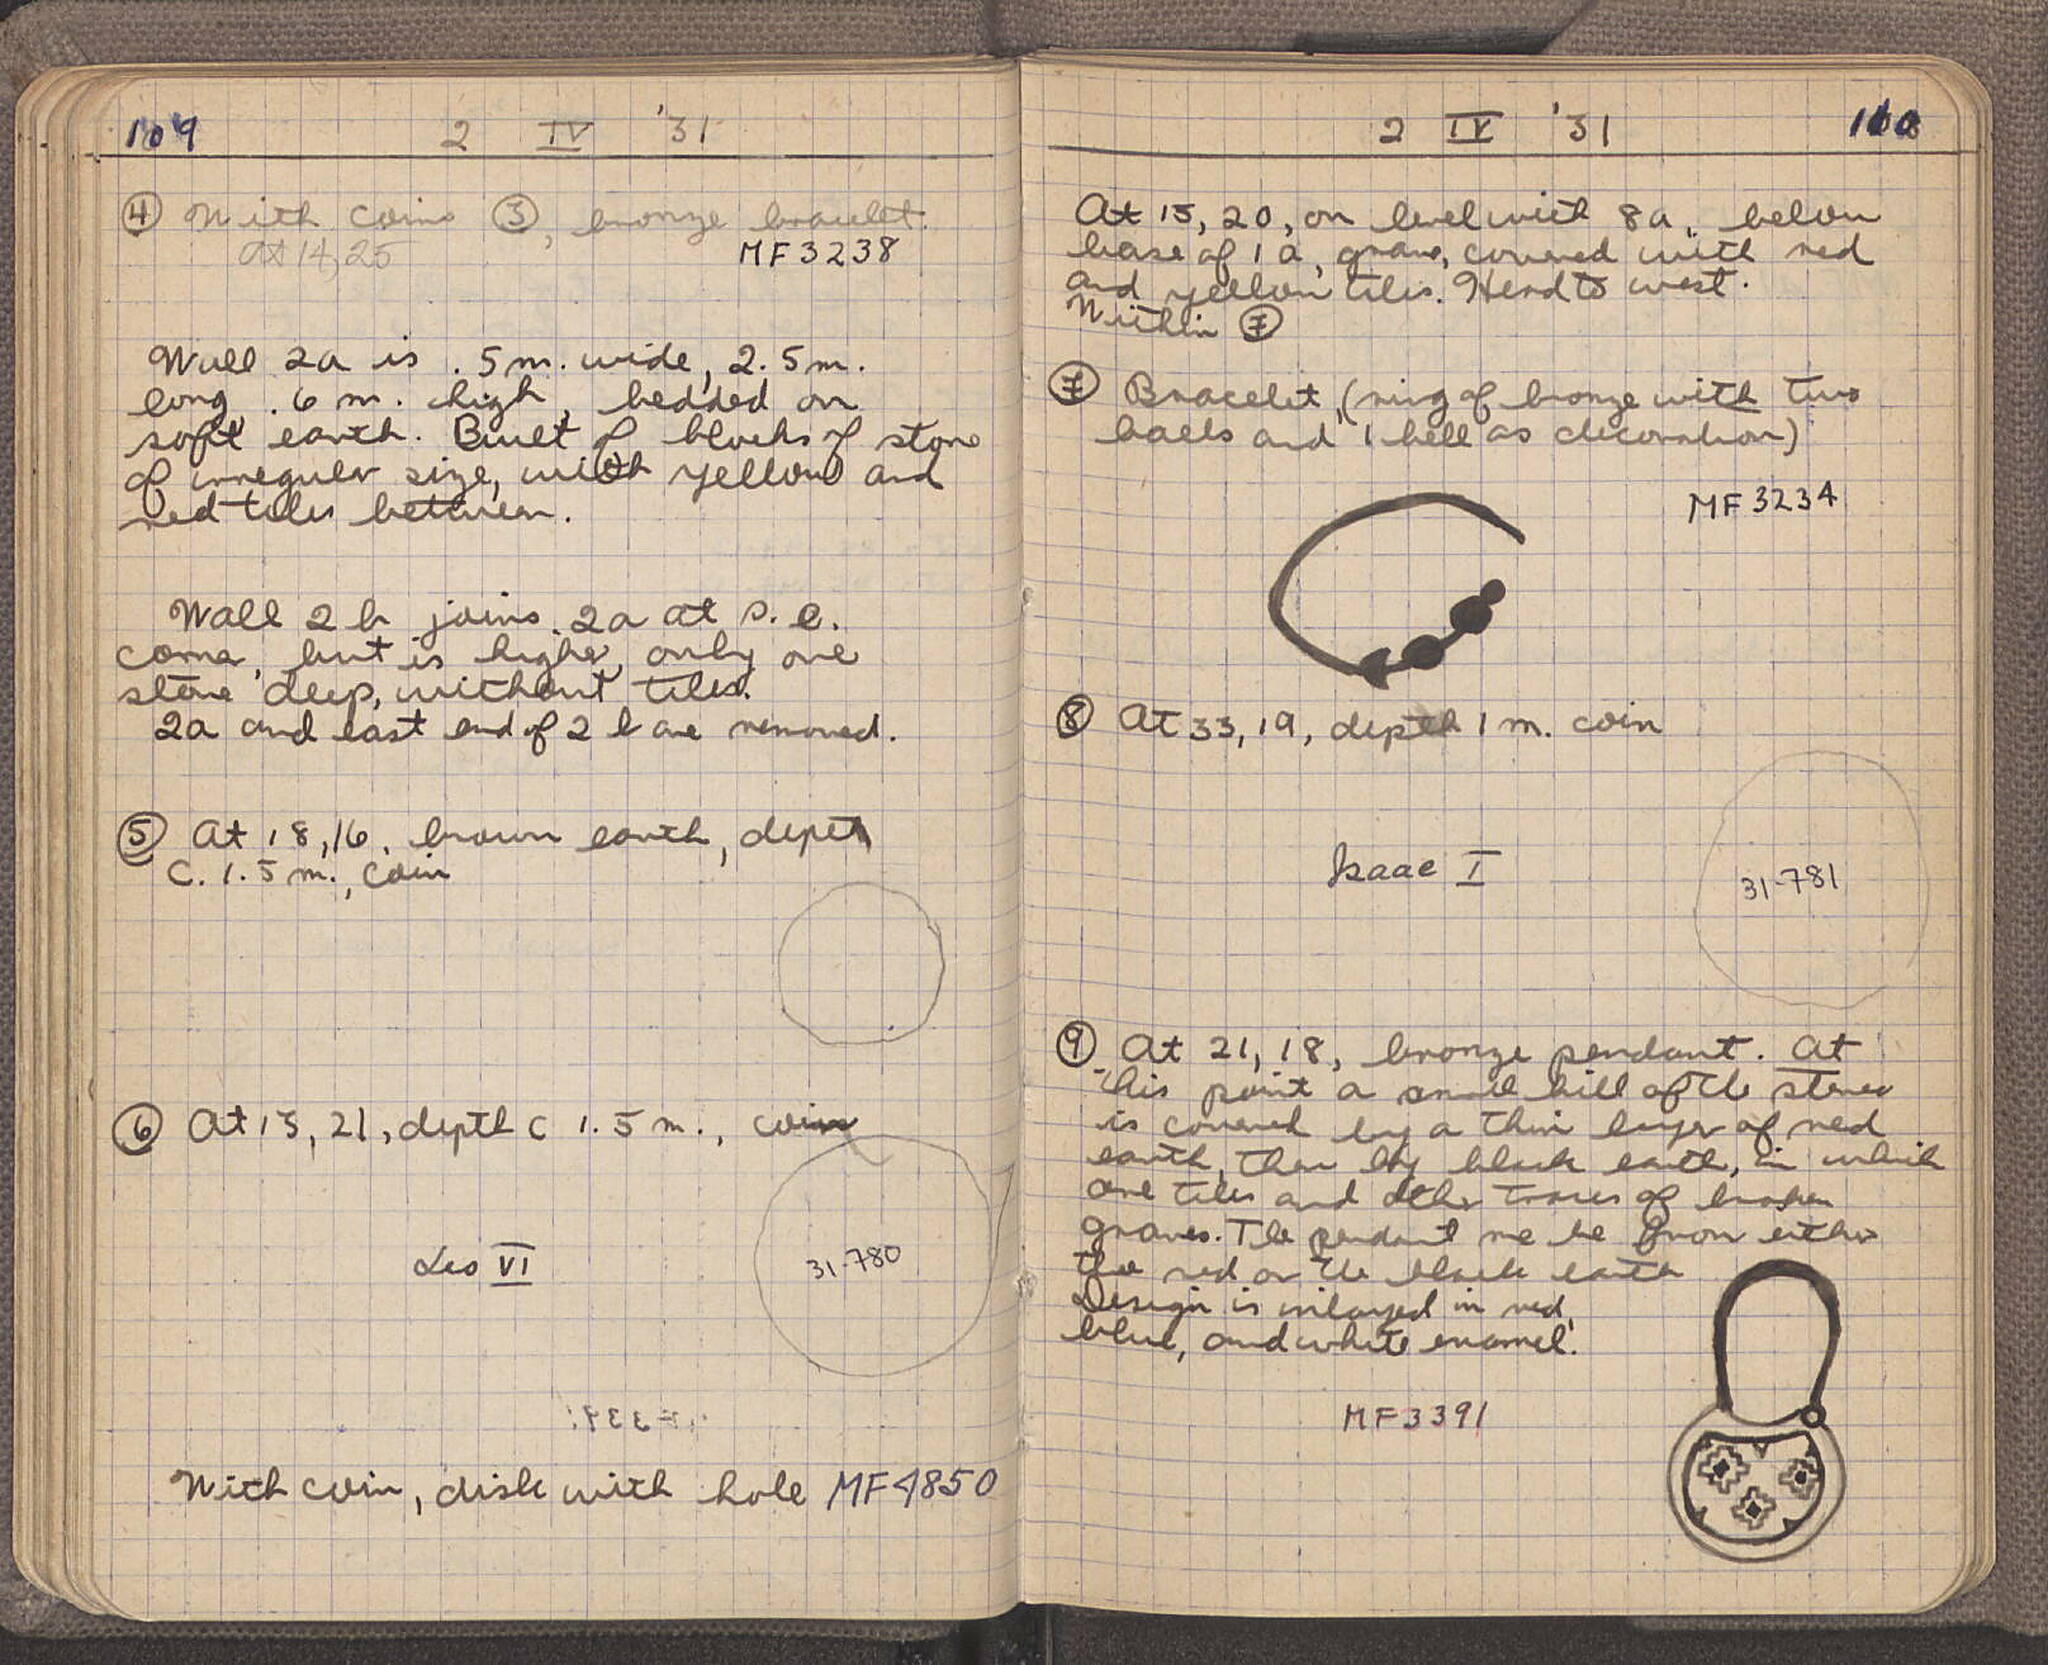 109
2 IV '31
④ With coins ③, bronze bracelet.
at 14,25 MF 3238
Wall 2a is .5 m. wide, 2.5 m.
long, .6 m. high, bedded on
soft earth. Built of blocks of stone
of irregular size, with yellow and
red tiles between.
Wall 2 b joins 2a at s. e.
corner, but is higher, only one
stone deep, without tiles.
2a and east end of 2 b are removed.
⑤ At 18,16, brown earth, depth
c. 1.5 m., coin
⑥ At 15, 21, depth c 1.5 m., coin
Leo VI
31-780
With coin, disk with hole MF 4850
2 IV '31
At 15, 20, on level with 8a, below
base of 1 a, grave, covered with red
and yellow tiles. Head to west.
Within ⑦
⑦ Bracelet, (ring of bronze with two
balls and 1 bell as decoration)
MF 3234
⑧ At 33, 19, depth 1 m. coin
Isaac I
31-781
⑨ At 21, 18, bronze pendant. At
this point a small hill of the stereo
is covered by a thin layer of red
earth, then by black earth, in which
are tiles and other traces of broken
graves. The pendant me be from either
the red or the black earth
Design is inlayed in red,
blue, and white enamel.
MF 3391